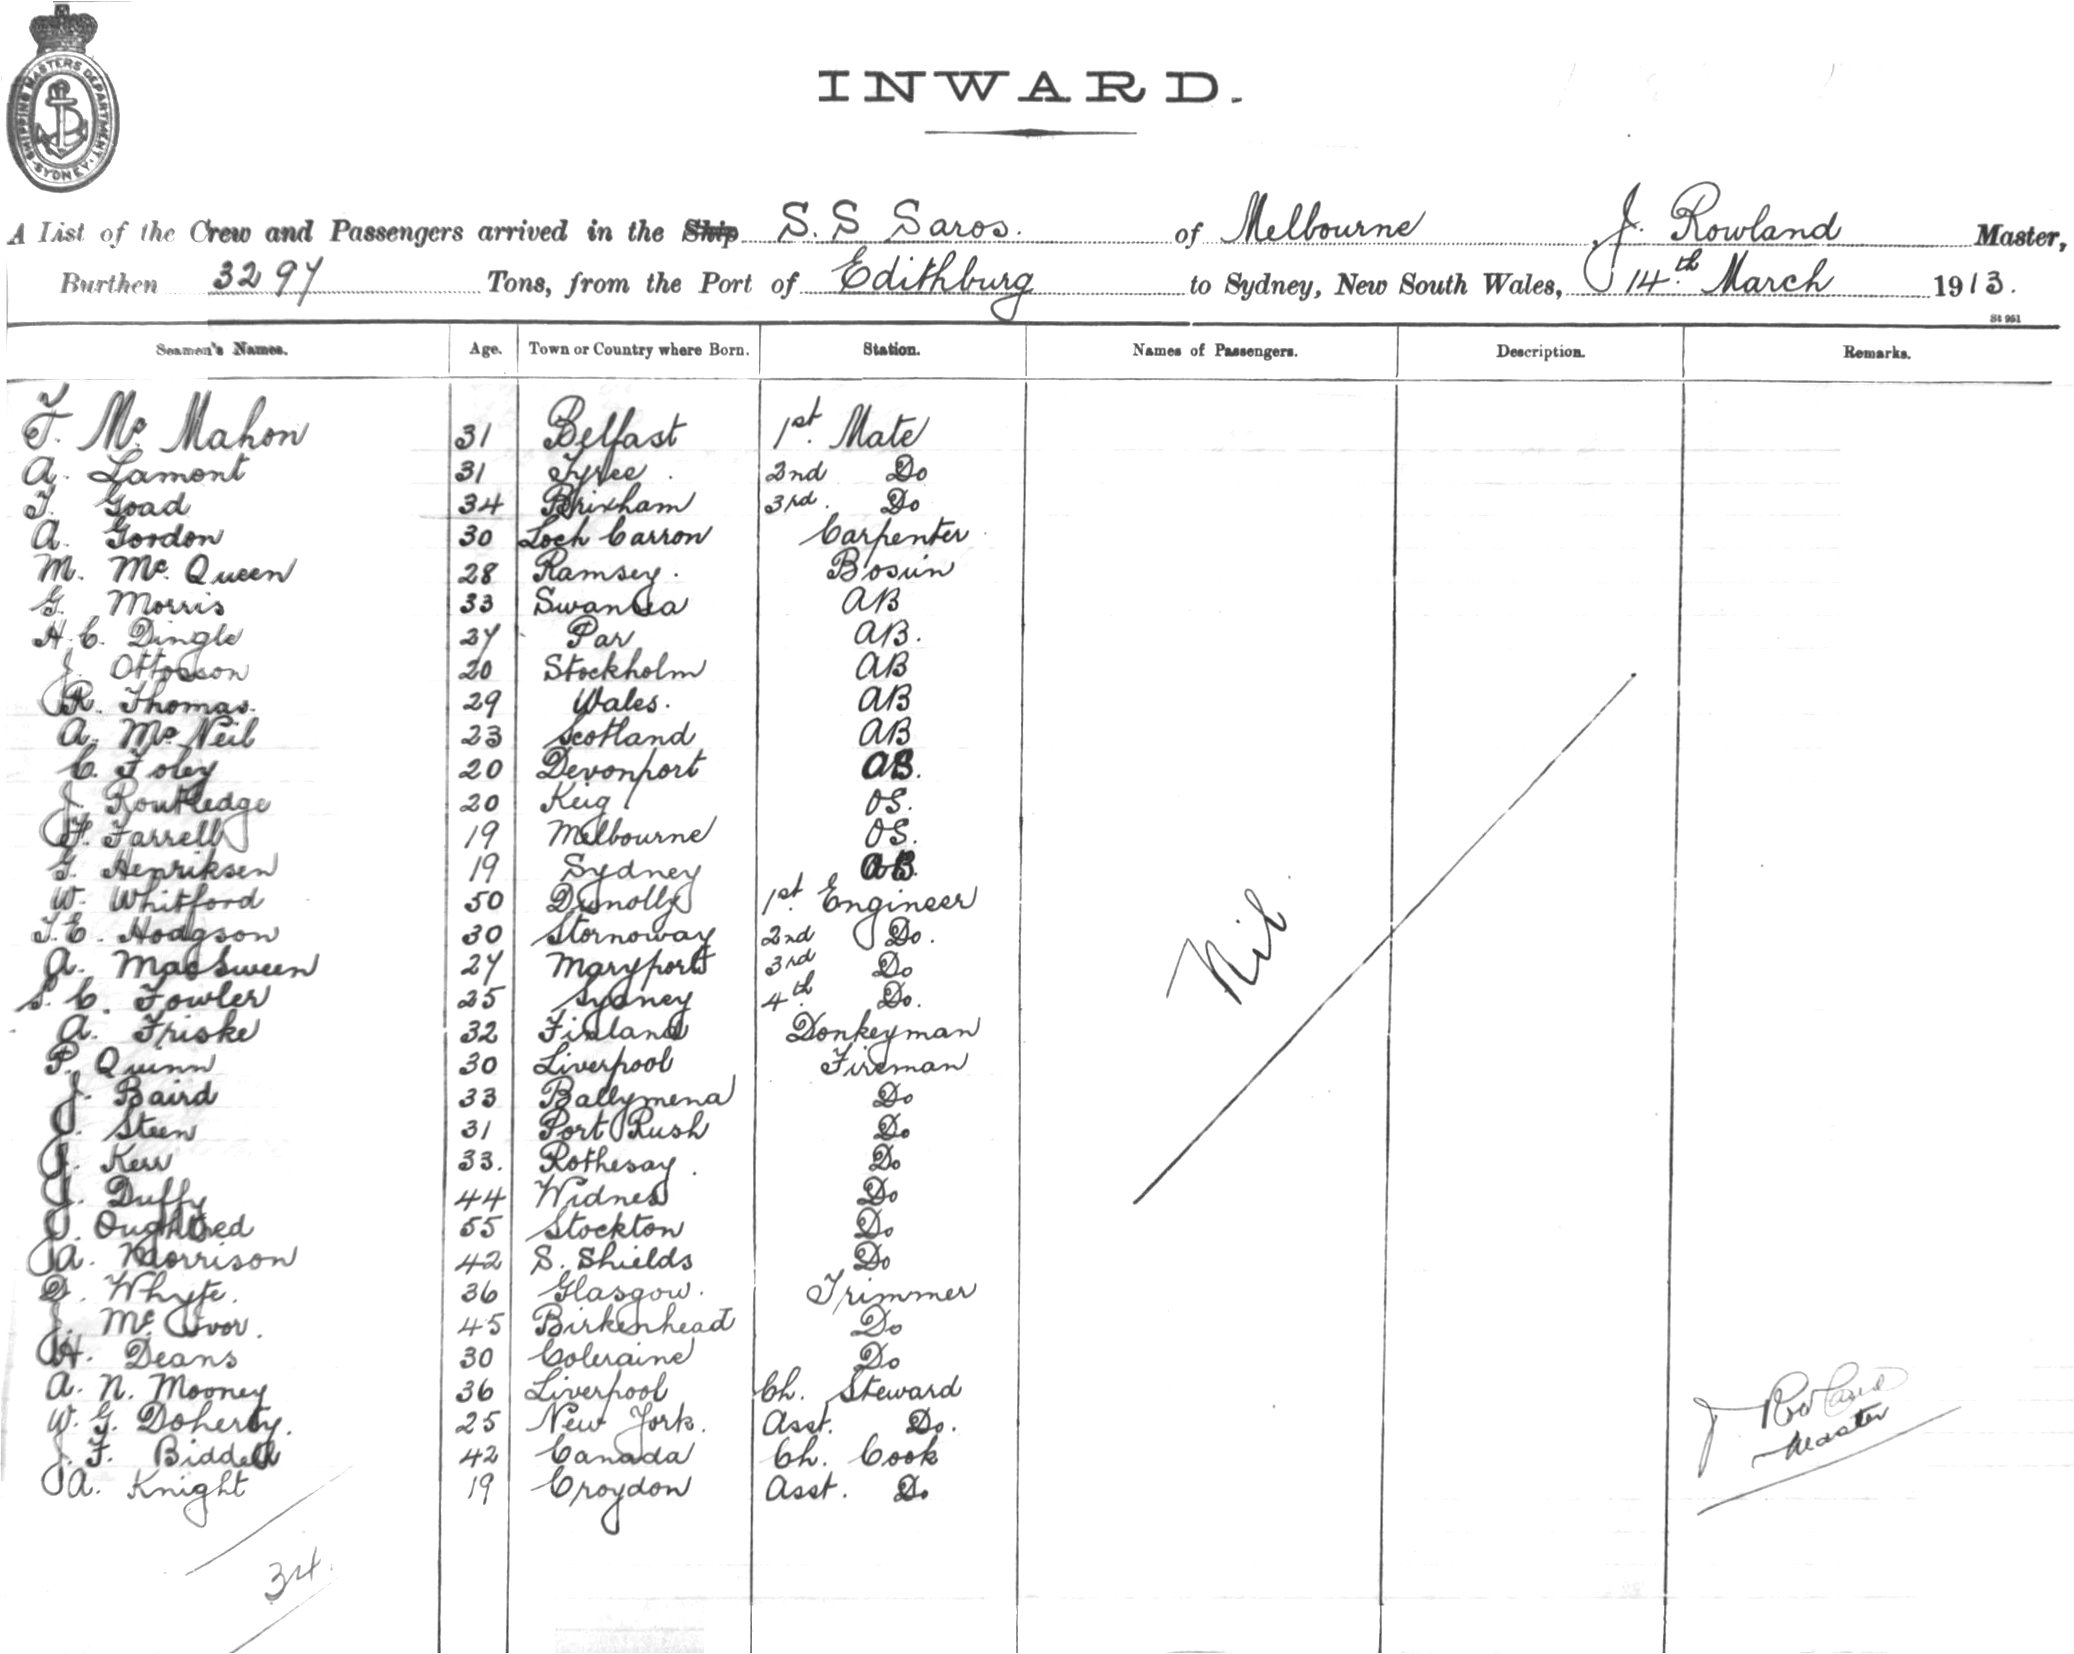 SHIPPING MASTERS DEPARTMENT. SYDNEY
INWARD.
A List of the Crew and Passengers arrived in the Ship S.S Saros. of Melbourne, J. Rowland Master,
Burthen 3297 Tons, from the Port of Edithburg to Sydney, New South Wales, 14th March 1913.
St 951
Seamen's Names. Age. Town or Country where Born. Station. Names of Passengers. Description. Remarks.
F. Mc Mahon 31 Belfast 1st. Mate
A. Lamont 31 Tyree. 2nd Do
T. Goad 34 Brixham 3rd. Do
A. Gordon 30 Loch Carron Carpenter
M. Mc Queen 28 Ramsey. Bosun
G. Morris 33 Swansea AB
H. C. Dingle 27 Par AB.
J. Ottosson 20 Stockholm AB
R. Thomas. 29 Wales. AB
A. Mc Neil 23 Scotland AB
C. Foley 20 Devonport
J. Routledge 20 Keig OS.
H. Farrell 19 Melbourne OS.
G. Henriksen 19 Sydney
W. Whitford 50 Dunolly 1st. Engineer
T. E. Hodgson 30 Stornoway 2nd Do.
A. MacSween 27 Maryport 3rd Do
S. C. Fowler 25 Sydney 4th Do.
A. Friske 32 Finland Donkeyman
P. Quinn 30 Liverpool Fireman
J. Baird 33 Ballymena Do
J. Steen 31 Port Rush Do
J. Kerr 33. Rothesay. Do
J. Duffy 44 Widnes Do
J. Oughtred 55 Stockton Do
A. Morrison 42 S. Shields Do
D. Whyte. 36 Glasgow. Trimmer
J. Mc Ivor. 45 Birkenhead Do
H. Deans 30 Coleraine Do
A. N. Mooney 36 Liverpool Ch. Steward
W. G. Doherty. 25 New York. Asst. Do.
J. F. Biddell 42 Canada Ch. Cook
A. Knight 19 Croydon Asst. Do
Nil
J Rowland
Master
34.